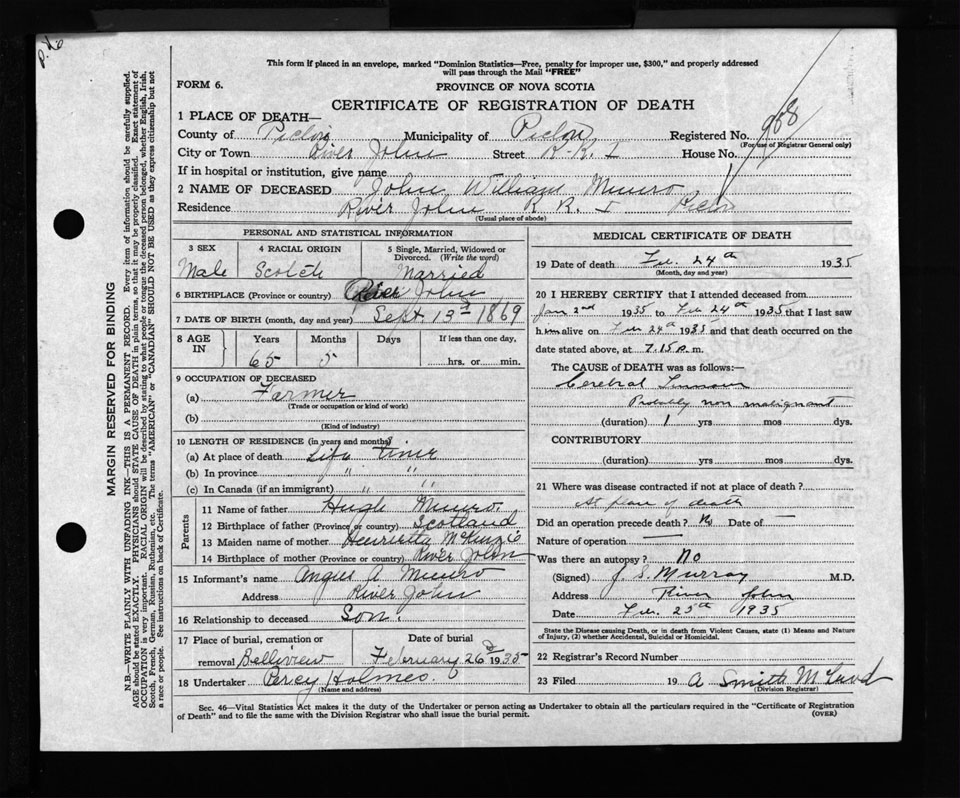 P. No
This form if placed in an envelope, marked "Dominion Statistics—Free, penalty for improper use, $300," and properly addressed
will pass through the Mail "FREE"
FORM 6.
PROVINCE OF NOVA SCOTIA
CERTIFICATE OF REGISTRATION OF DEATH
1 PLACE OF DEATH—
County of Pictou Municipality of Pictou Registered No. 958
(For use of Registrar General only)
City or Town River John Street R.R. 1 House No.
If in hospital or institution, give name
2 NAME OF DECEASED John William Munro
Residence River John R R. 1 Pictou
(Usual place of abode)
PERSONAL AND STATISTICAL INFORMATION
3 SEX 4 RACIAL ORIGIN 5 Single, Married, Widowed or
Divorced. (Write the word)
Male Scotch Married
6 BIRTHPLACE (Province or country) River John
7 DATE OF BIRTH (month, day and year) Sept. 13 1869
8 AGE IN Years Months Days If less than one day,
65 5 hrs. or min.
9 OCCUPATION OF DECEASED
(a) Farmer
(Trade or occupation or kind of work)
(b)
(Kind of industry)
10 LENGTH OF RESIDENCE (in years and months)
(a) At place of death Life time
(b) In province " "
(c) In Canada (if an immigrant) " "
Parents
11 Name of father Hugh Munro.
12 Birthplace of father (Province or country) Scotland
13 Maiden name of mother Henrietta McKenzie
14 Birthplace of mother (Province or country) River John
15 Informant's name Angus A Munro
Address River John
16 Relationship to deceased Son.
17 Place of burial, cremation or Date of burial
removal Belliview February 26 1935
18 Undertaker Percy Holmes.
(Name and address)
MEDICAL CERTIFICATE OF DEATH
19 Date of death Feb. 24th 1935
(Month, day and year)
20 I HEREBY CERTIFY that I attended deceased from
Jan 2nd 1935 to Feb 24th 1935 that I last saw
him alive on Feb 24th 1935 and that death occurred on the
date stated above, at 7.15 p.m.
The CAUSE of DEATH was as follows:—
Cerebral Tumour
Probably non malignant
(duration) 1 yrs mos dys.
CONTRIBUTORY
(duration) yrs mos. dys.
21 Where was disease contracted if not at place of death?
At place of death
Did an operation precede death? No Date of —
Nature of operation —
Was there an autopsy? No
(Signed) J. S. Murray M.D.
Address River John
Date Feb. 25th 1935
State the Disease causing Death, or in death from Violent Causes, state (1) Means and Nature
of Injury, (2) whether Accidental, Suicidal or Homicidal.
22 Registrar's Record Number
23 Filed 19 A Smith
(Division Registrar)
Sec. 46—Vital Statistics Act makes it the duty of the Undertaker or person acting as Undertaker to obtain all the particulars required in the "Certificate of Registration
of Death" and to file the same with the Division Registrar who shall issue the burial permit.
(OVER)
MARGIN RESERVED FOR BINDING
N.B.—WRITE PLAINLY WITH UNFADING INK—THIS IS A PERMANENT RECORD. Every item of information should be carefully supplied.
AGE should be stated EXACTLY. PHYSICIANS should STATE CAUSE OF DEATH in plain terms, so that it may be properly classified. Exact statement of
OCCUPATION is very important. RACIAL ORIGIN will be described by stating to what people or tongue the deceased person belonged, whether English, Irish,
Scotch, French, German, Russian, Ruthenian, etc. The terms "AMERICAN" or "CANADIAN" SHOULD NOT BE USED as they express citizenship but not
a race or people. See instructions on back of Certificate.